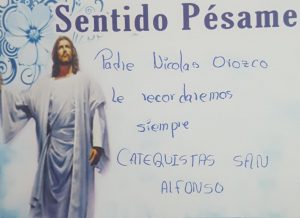 Sentido Pésame
Padre Nicolas Orozco
le recordaremos
siempre
CATEQUISTAS SAN
ALFONSO